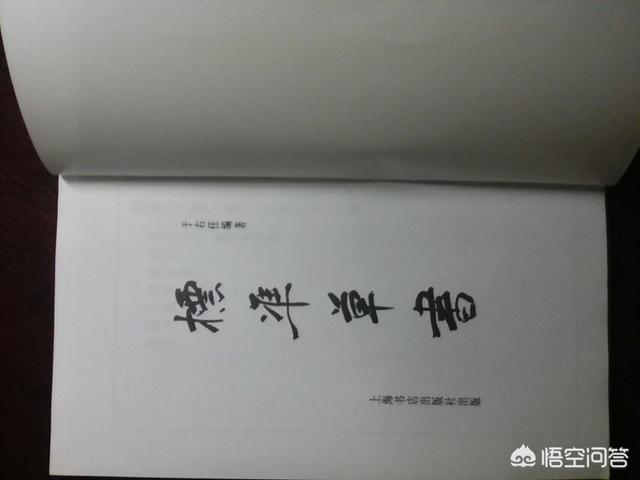 于右任编著
標準草書
上海书店出版社出版
悟空问答